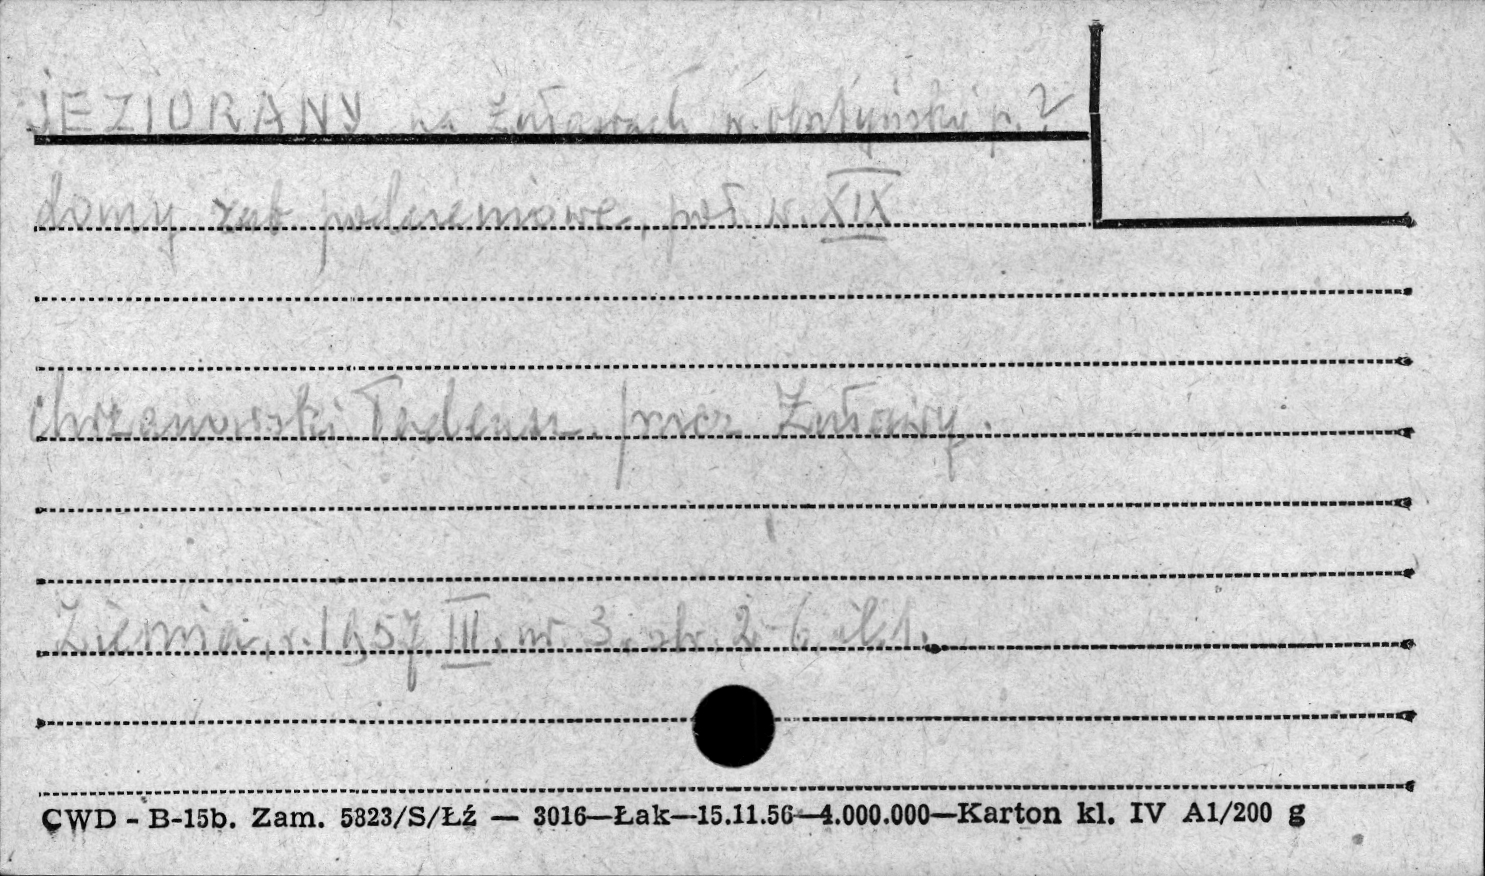 JEZIORANY na Żuławach w. olsztyński p. ?
domy zab podcieniowe, poł. w. XIX
Chrzanowski Tadeusz. przez Żuławy.
Ziemia, r. 1957, III, nr. 3, str. 2-6, il. 1.
CWD - B-15b. Zam. 5823/S/Łź — 3016—Łak—15.11.56—4.000.000—Karton kl. IV A1/200 g